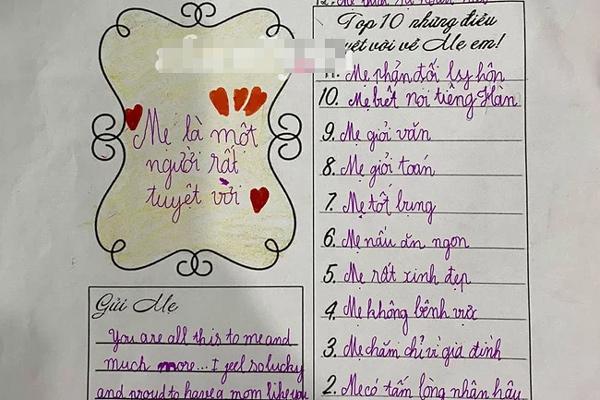 Mẹ là một
người rất
tuyệt vời
Gửi Mẹ
You are all this to me and
much more... I feel so lucky
and proud to have a mom like you
Top 10 những điều
yệt vời về Mẹ em!
11. Mẹ phản đối ly hôn
10. Mẹ biết nói tiếng Hàn
9. Mẹ giỏi văn
8. Mẹ giỏi toán
7. Mẹ tốt bụng
6. Mẹ nấu ăn ngon
5. Mẹ rất xinh đẹp
4. Mẹ không bênh vực
3. Mẹ chăm chỉ vì gia đình
2. Mẹ có tấm lòng nhân hậu